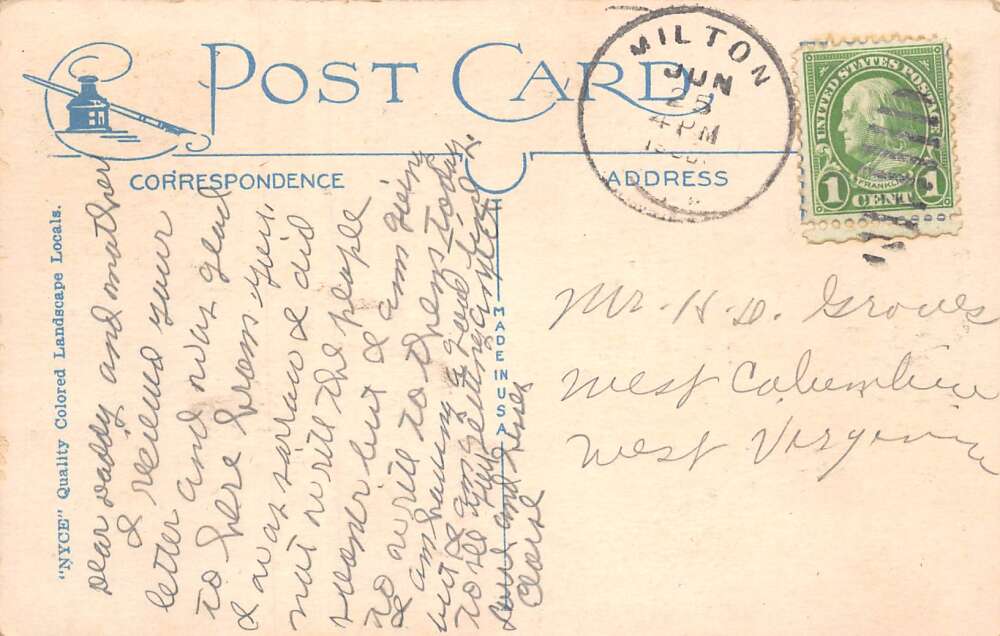 POST CARD
CORRESPONDENCE
ADDRESS
MILTON
JUN
25
4 PM
UNITED STATES POSTAGE
1 1
FRANKLIN
CENT
"NYCE" Quality Colored Landscape Locals.
MADE IN U.S.A.
Dear daddy and mother
I recieved your
letter and was glad
to here from you.
I was sorrow I did
not write the people
sooner but I am going
to write to them today.
I am having a good time
but I am getting
to
Love and kisses
Mr. H. D. Groves
West Columbia
West Virginia